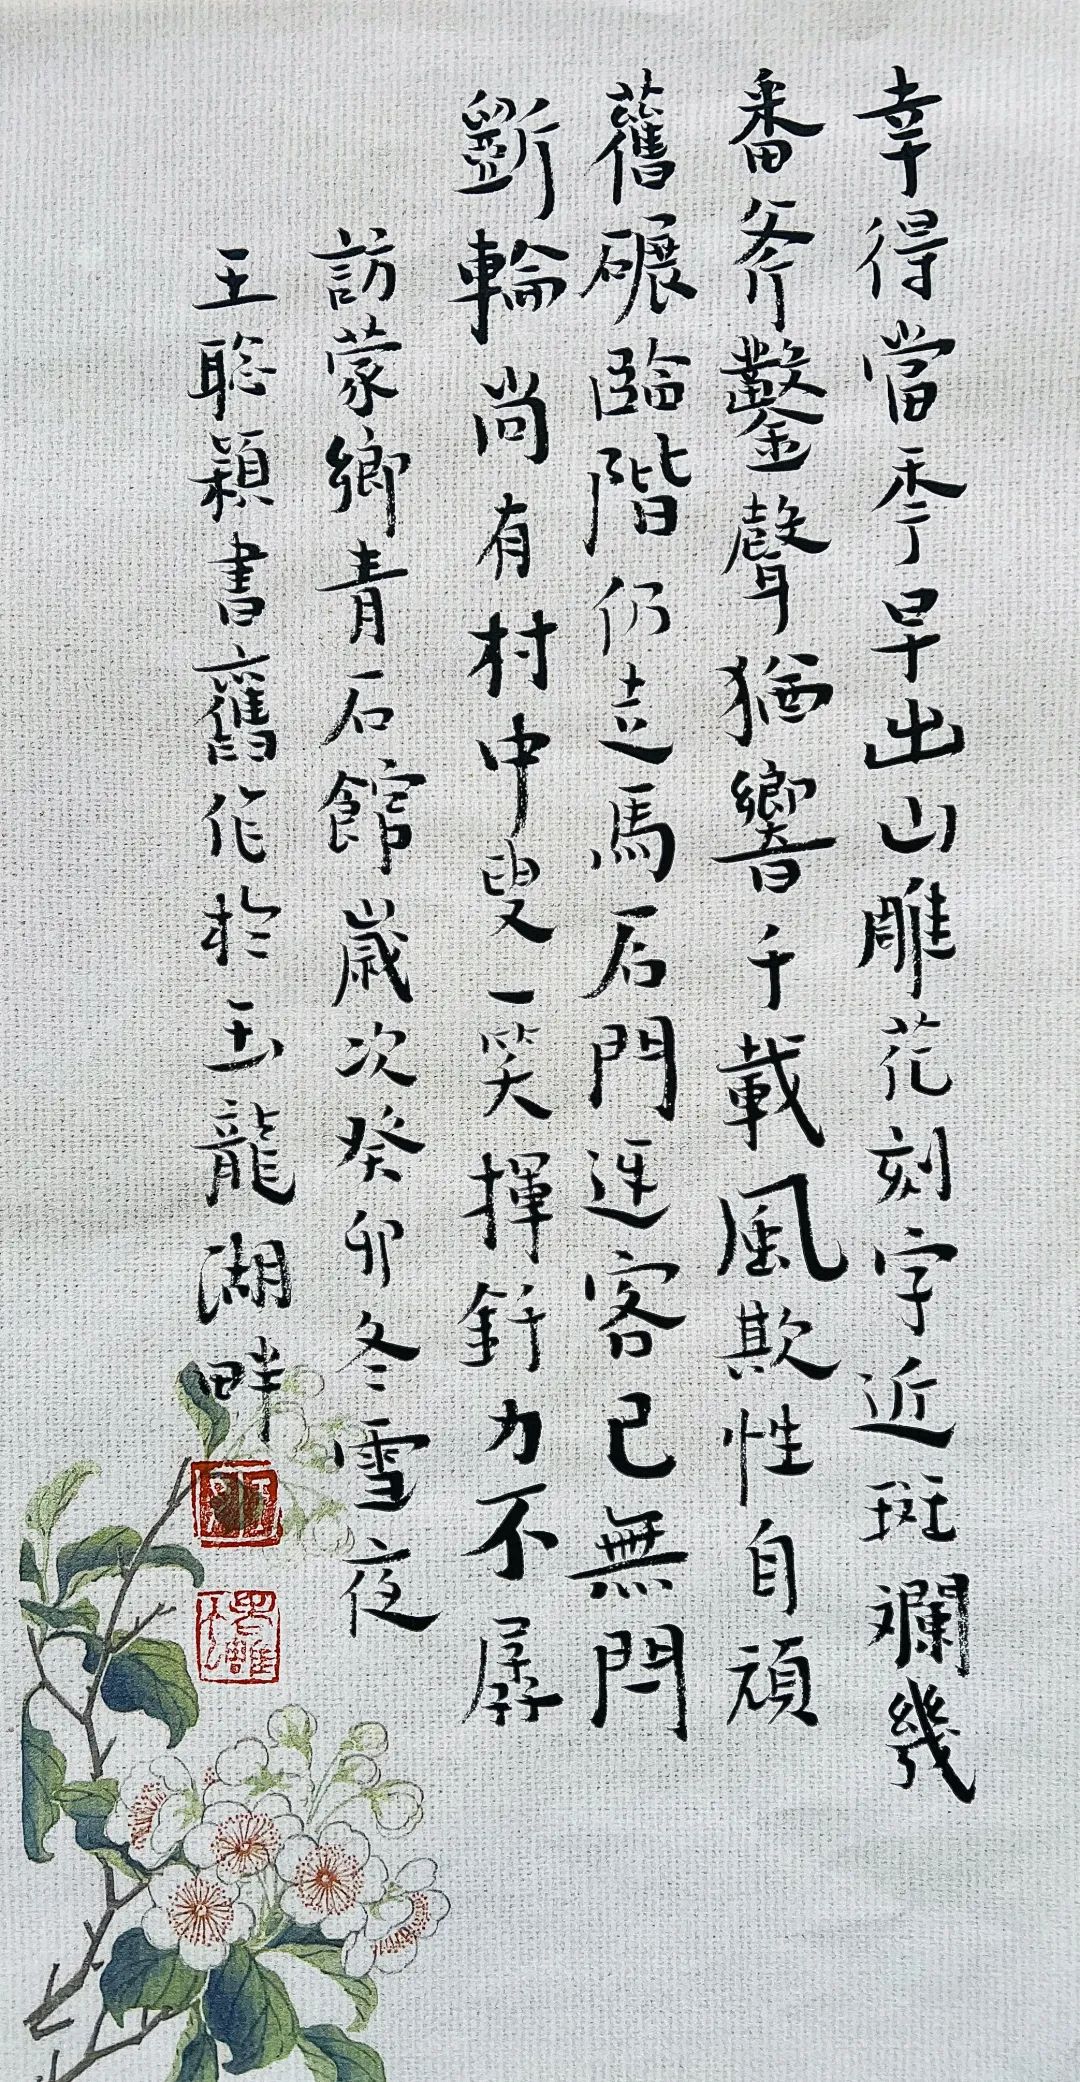 幸得當季早出山雕花刻字近斑斕幾
番斧鑿聲猶響千載風欺性自頑
舊碾臨階仍走馬石門迓客已無閂
斵輪尚有村中叟一笑揮釺力不孱
訪蒙鄉青石館歲次癸卯冬雪夜
王聰穎書舊作於玉龍湖畔